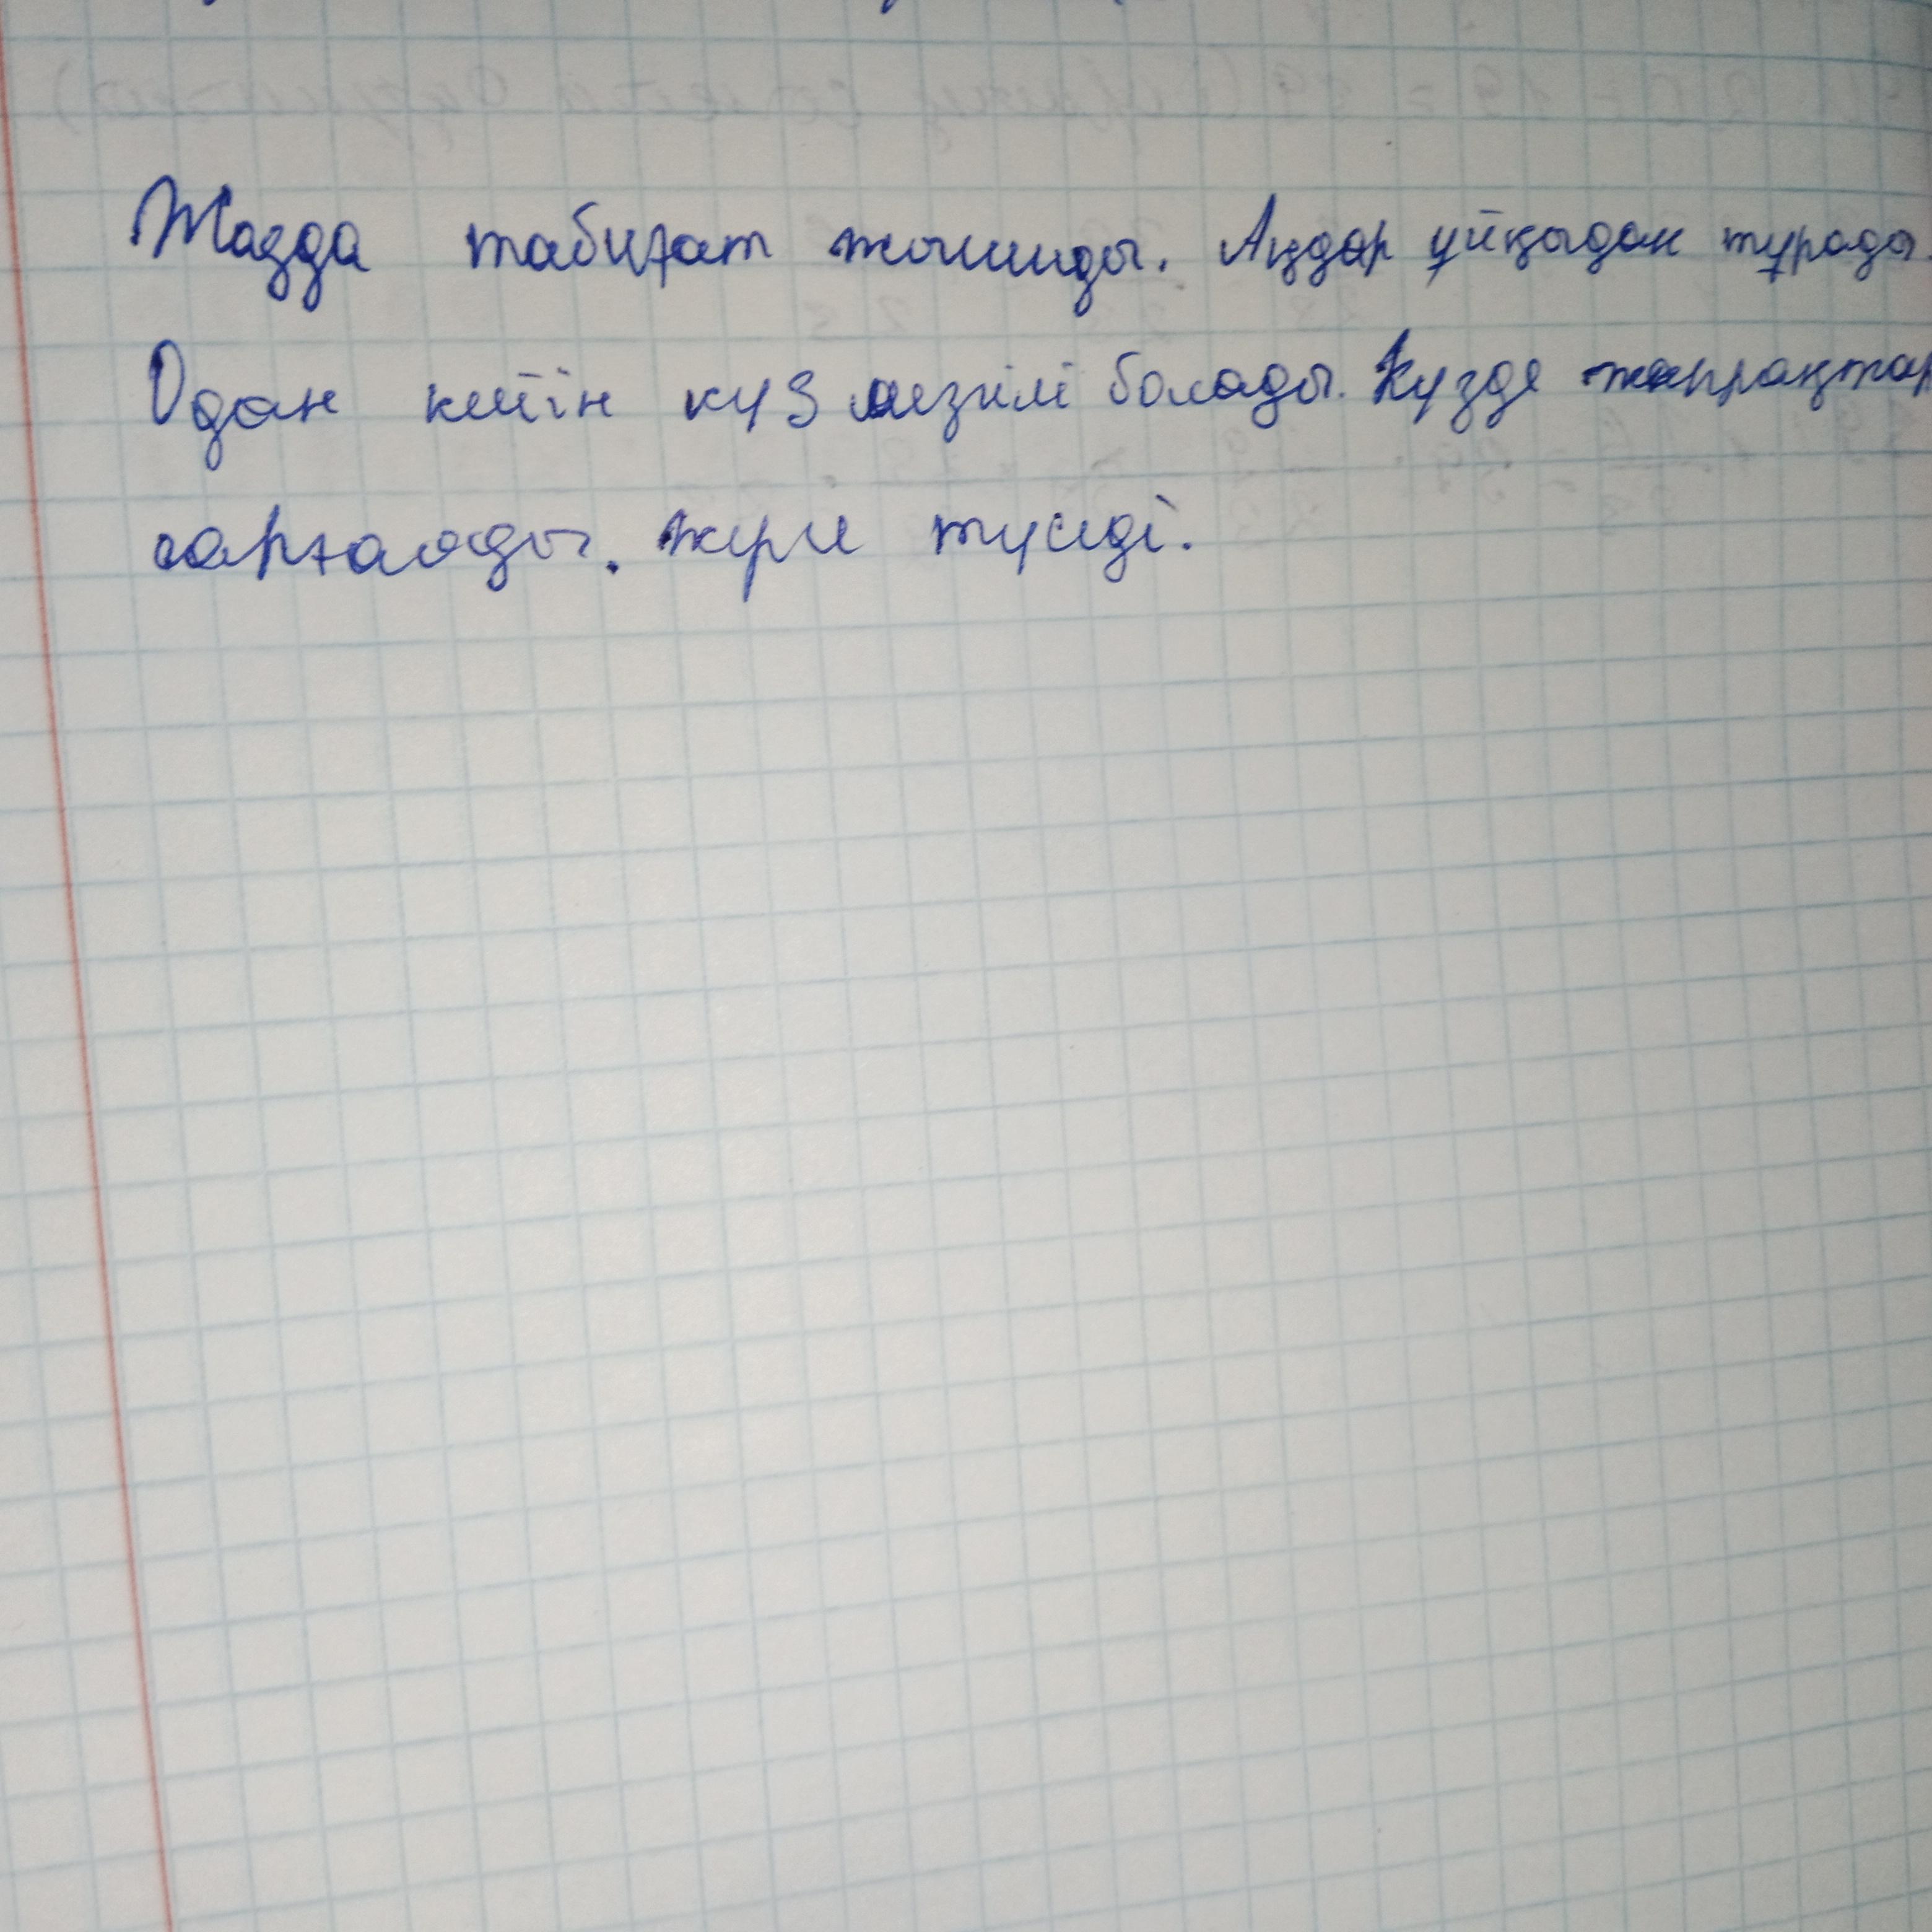 Жазда табиғат жылынды. Аңдар ұйқыдан тұрады.
Одан кейін күз мезгілі болады. Күзде жапрақтар
сарғаяды. жерге түседі.